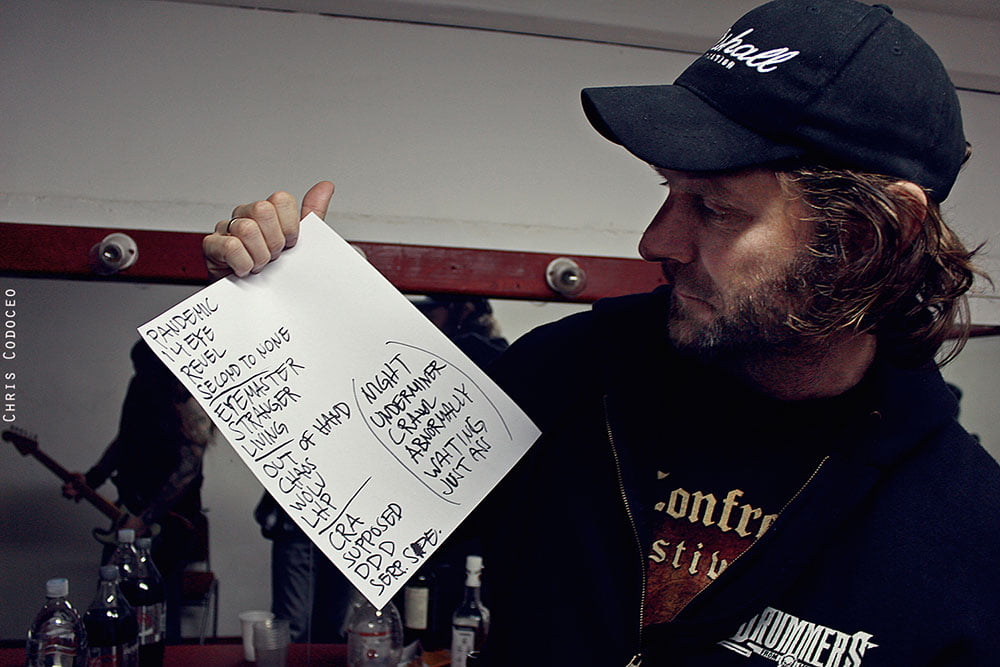 PANDEMIC
14 EYE
REVEL
SECOND TO NONE
EYEMASTER
STRANGER
LIVING
OUT OF HAND
CHAOS
WOLV
LHP
CRA
SUPPOSED
DDD
SERP.
NIGHT
UNDERMINER
CRAWL
ABNORMALLY
WAITING
JUST AS
CHRIS CODOCEO
DRUMMERS
FROM